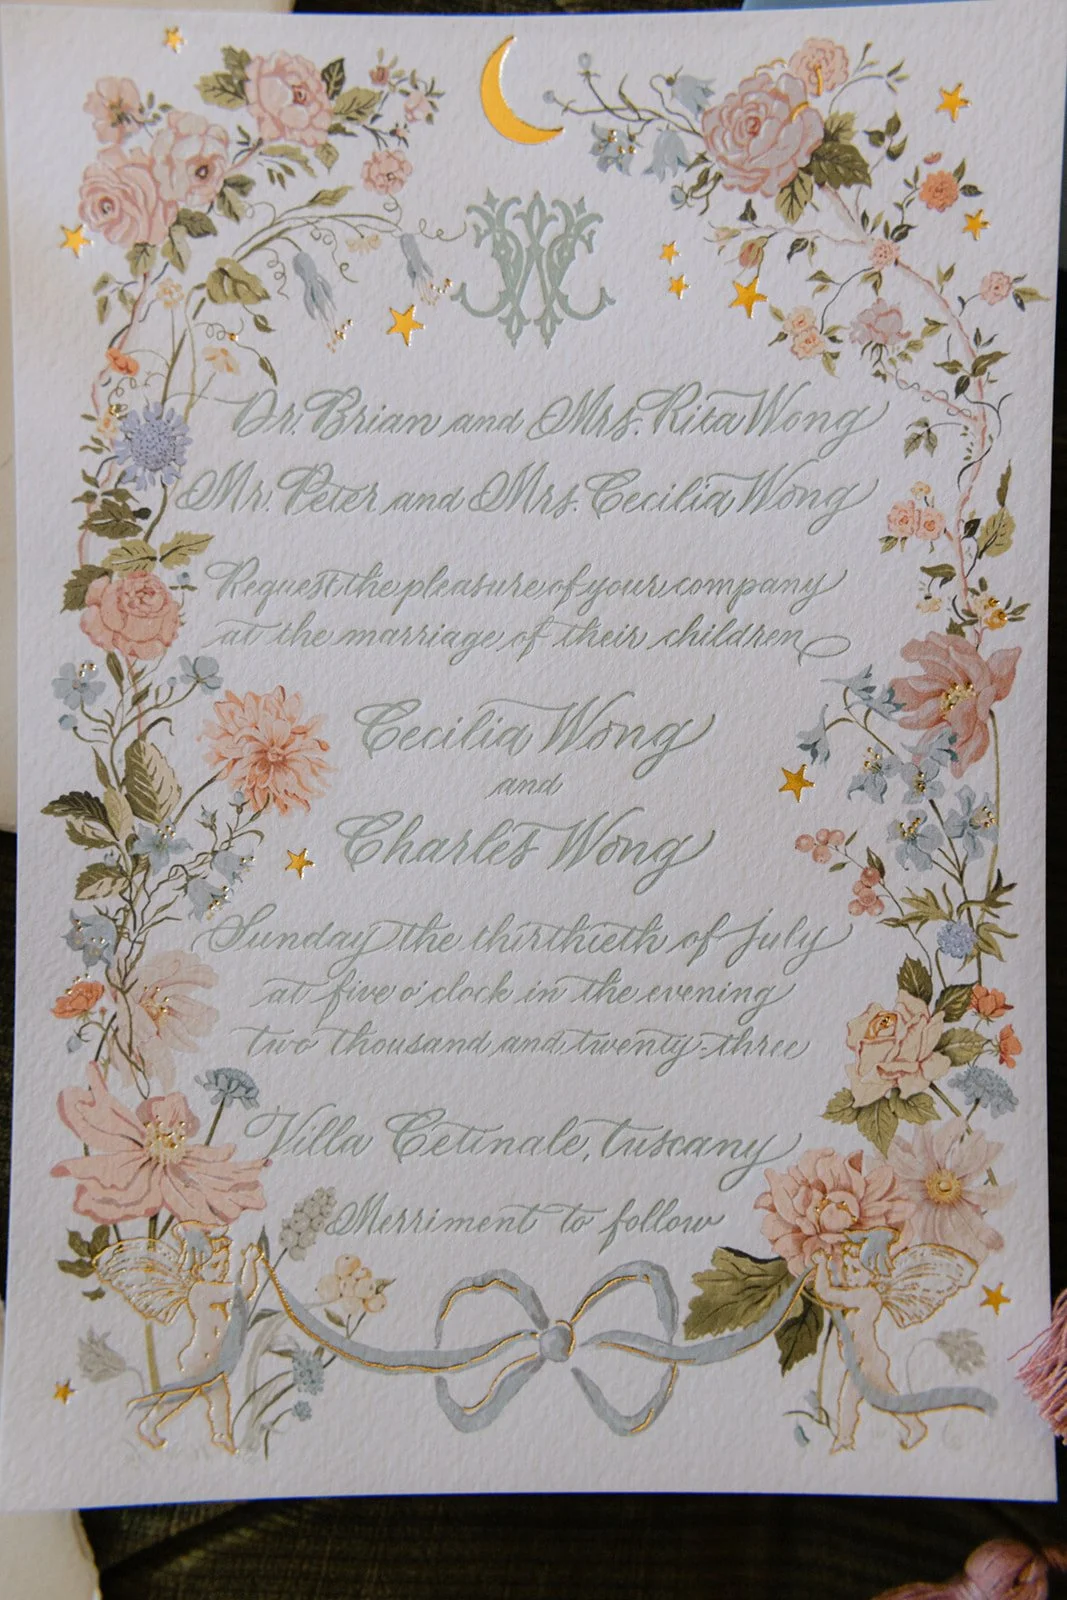 Dr. Brian and Mrs. Rita Wong
Mr. Peter and Mrs. Cecilia Wong
Request the pleasure of your company
at the marriage of their children
Cecilia Wong
and
Charles Wong
Sunday the thirthieth of July
at five o'clock in the evening
two thousand and twenty-three
Villa Cetinale, Tuscany
Merriment to follow